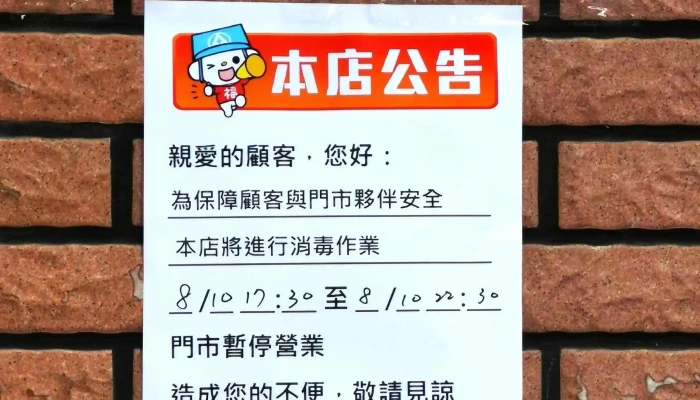 本店公告
福
親愛的顧客，您好：
為保障顧客與門市夥伴安全
本店將進行消毒作業
8/10 17:30 至 8/10 22:30
門市暫停營業
造成您的不便，敬請見諒